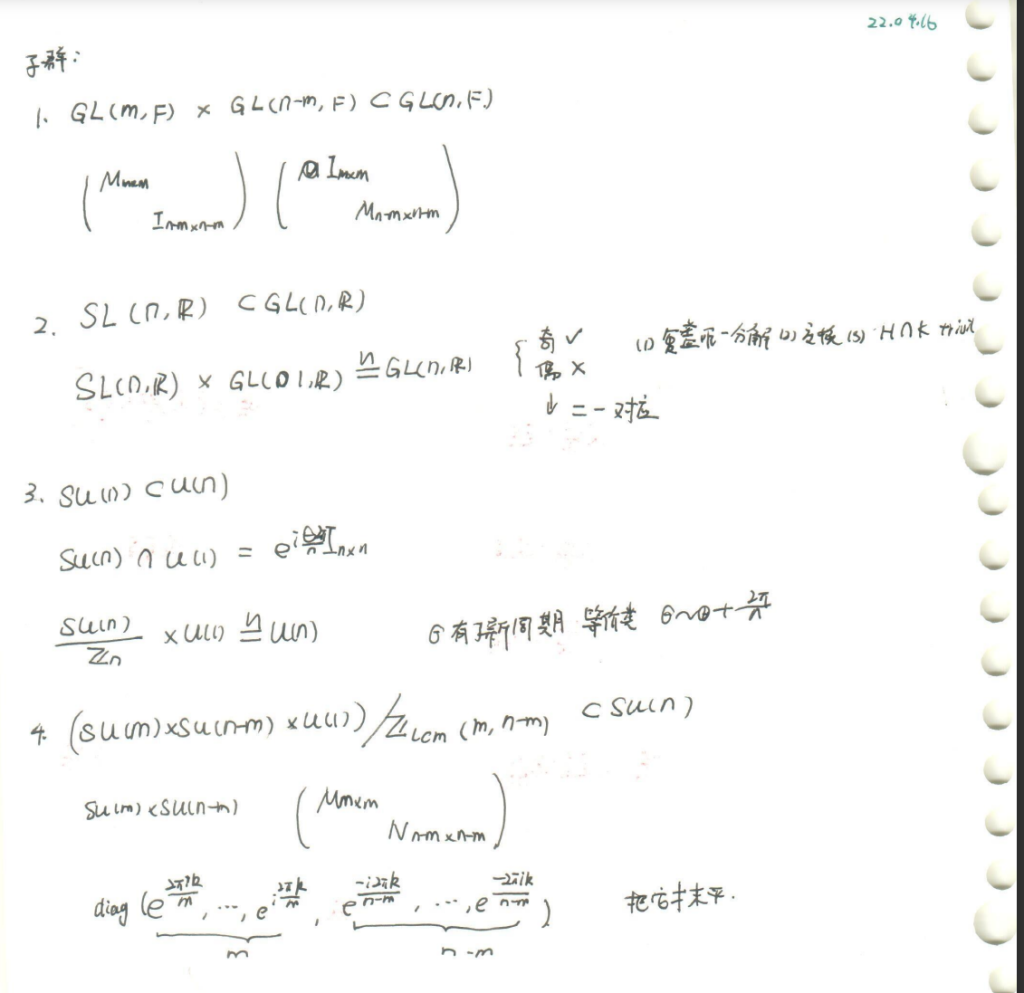 22.04.16
子群:
1. GL(m,F) × GL(n-m,F) ⊂ GL(n,F)
( M_{m×m} I_{n-m×n-m} ) ( I_{m×m} M_{n-m×n-m} )
2. SL(n,R) ⊂ GL(n,R)
SL(n,R) × GL(1,R) ≅ GL(n,R) { 奇 ✓ 偶 × (1) 覆盖 唯一分解 (2) 交换 (3) H∩K
↓ 二一对应
3. SU(n) ⊂ U(n)
SU(n) ∩ U(1) = e^{i} I_{n×n}
SU(n)/Z_n × U(1) ≅ U(n) θ有了新周期 等价类 θ~θ+2π/n
4. (SU(m)×SU(n-m)×U(1))/Z_{lcm(m,n-m)} ⊂ SU(n)
SU(m)×SU(n-m) ( M_{m×m} N_{n-m×n-m} )
diag (e^{2πik/m}, ..., e^{i2πk/m}, e^{-i2πk/n-m}, ..., e^{-2πik/n-m}) 把它抹平.
m n-m